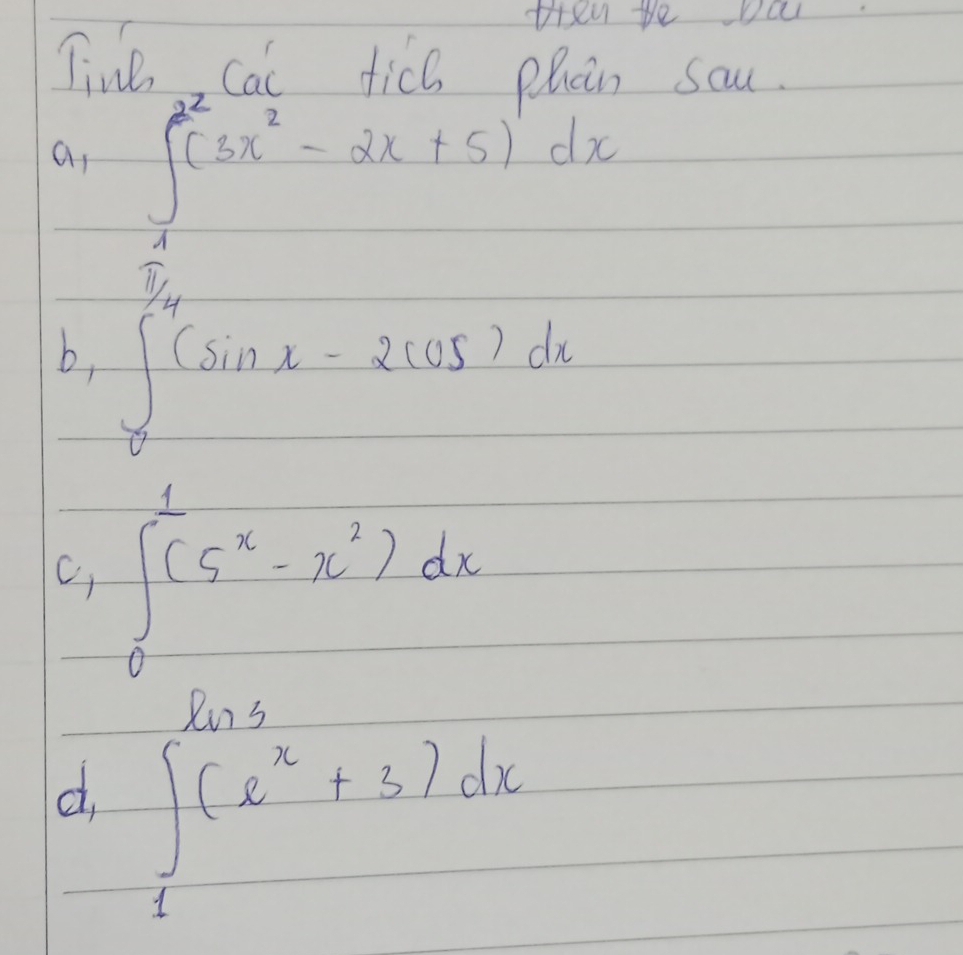 Tính các tích phân sau.
a, ∫₁² (3x² - 2x + 5) dx
b, ∫₀^{π/4} (sin x - 2cos) dx
c, ∫₀¹ (5ˣ - x²) dx
d, ∫₁^{ln 3} (eˣ + 3) dx